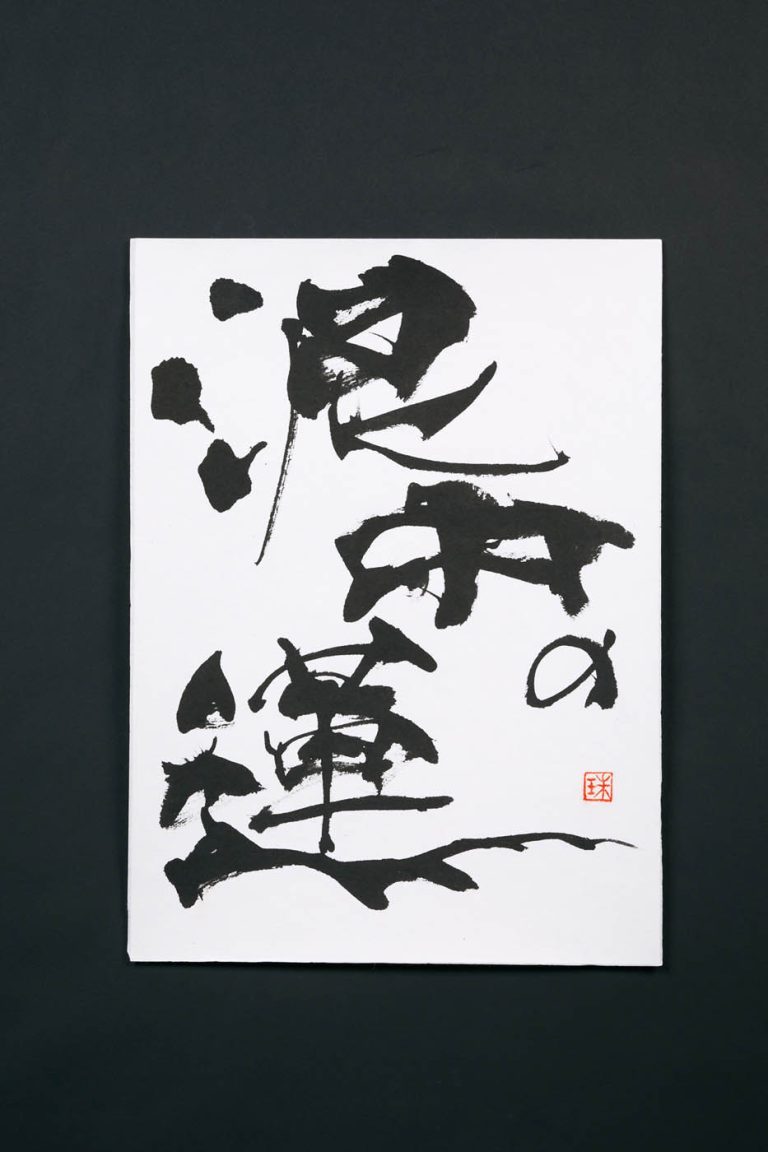 泥中の
蓮
珠